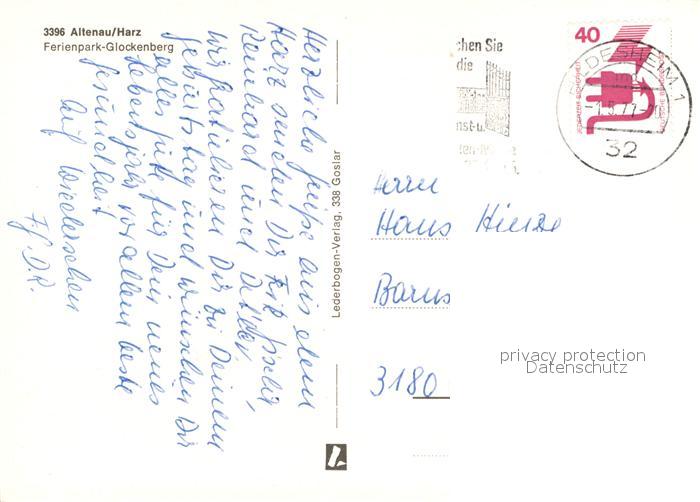 3396 Altenau/Harz
Ferienpark-Glockenberg
Herzliche Grüße aus dem
Harz senden Dir Fritz, Gisela,
Reinhard und Detlev.
Wir gratulieren Dir zu Deinem
Geburtstag und wünschen Dir
alles gute für Dein neues
Lebensjahr vor allem beste
Gesundheit
Auf Wiedersehen
F. G. D. R.
Lederbogen-Verlag, 338 Goslar
chen Sie
die
nst-u.
40
JEDERZEIT SICHERHEIT
DEUTSCHE BUNDESPOST
HILDESHEIM 1
32
Herrn
Hans Hinze
Barns
3180
privacy protection
Datenschutz